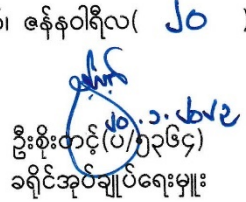 ၊ ဇန်နဝါရီလ( ၂၀ )
၂၀.၁.၂၀၂၁
ဦးစိုးတင့်(ပ/၅၃၆၄)
ခရိုင်အုပ်ချုပ်ရေးမှူး